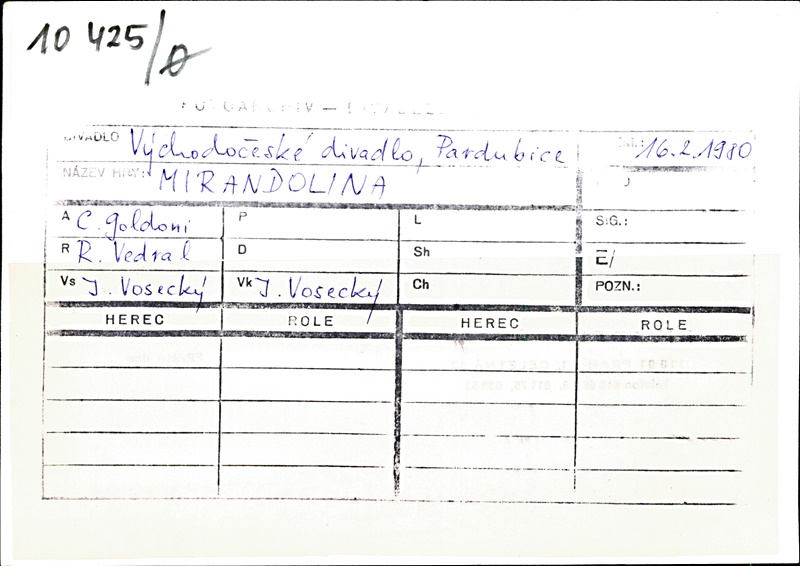 10 425/0
FOTOARCHIV —
DIVADLO Východočeské divadlo, Pardubice 16.2.1980
NÁZEV HRY: MIRANDOLINA
A C. Goldoni P L SIG.:
R R. Vedral D Sh E/
Vs J. Vosecký Vk J. Vosecký Ch POZN.:
HEREC ROLE HEREC ROLE